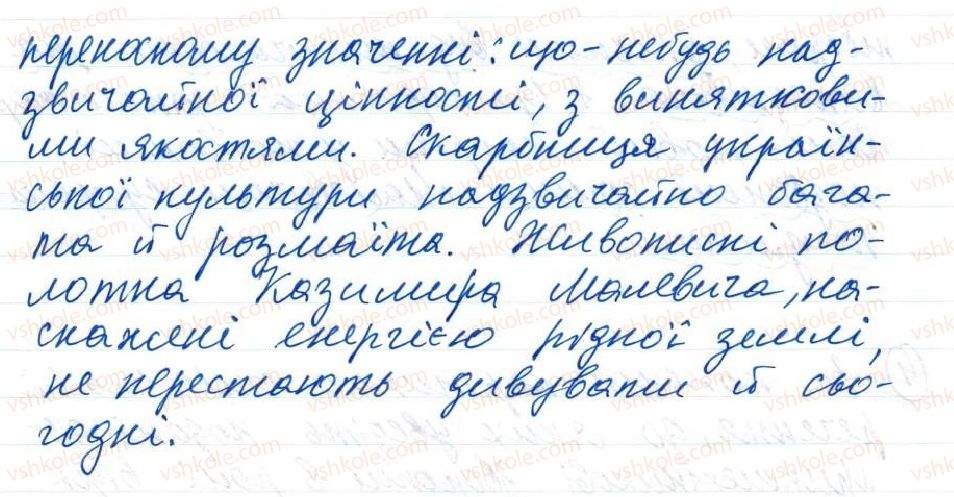 переносному значенні: що-небудь над-
звичайної цінності, з виняткови-
ми якостями. Скарбниця україн-
ської культури надзвичайно бага-
та й розмаїта. Живописні по-
лотна Казимира Малевича, на-
снажені енергією рідної землі,
не перестають дивувати й сьо-
годні.